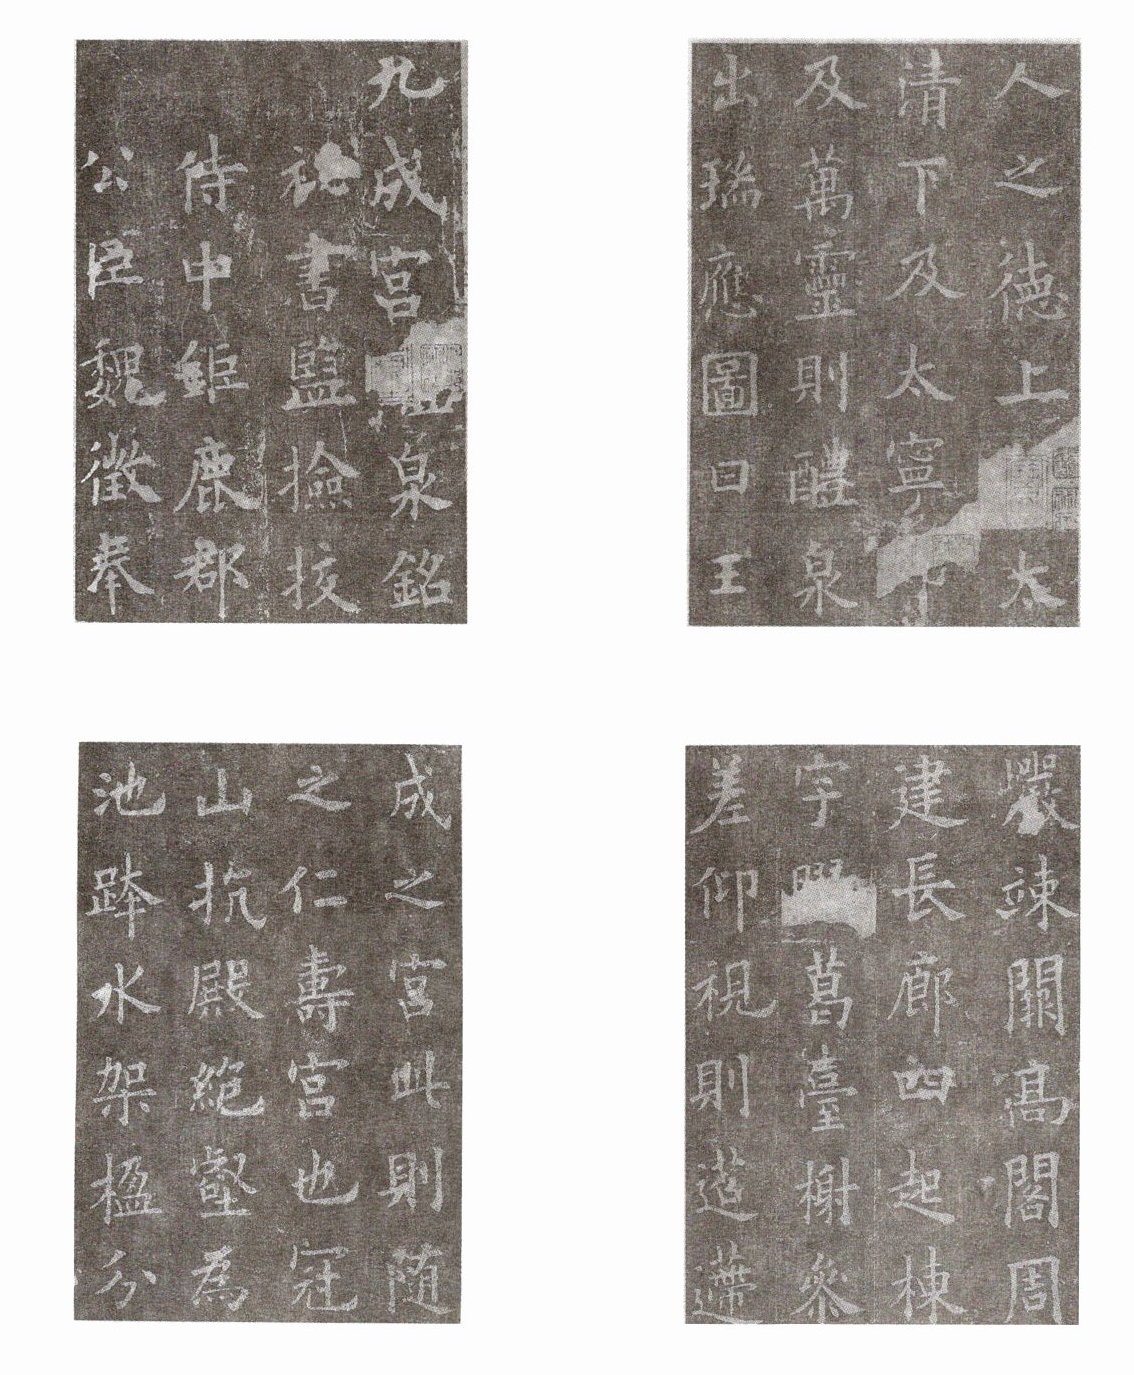 九成宮泉銘
祕書監撿挍
侍中鉅鹿郡
公臣魏徵奉
人之德上太
清下及太寧
及萬靈則醴泉
出瑞應圖曰王
成之宮此則隨
之仁壽宮也冠
山抗殿絕壑為
池跨水架楹分
巖竦闕高閣周
建長廊四起棟
宇葛臺榭參
差仰視則迢遰